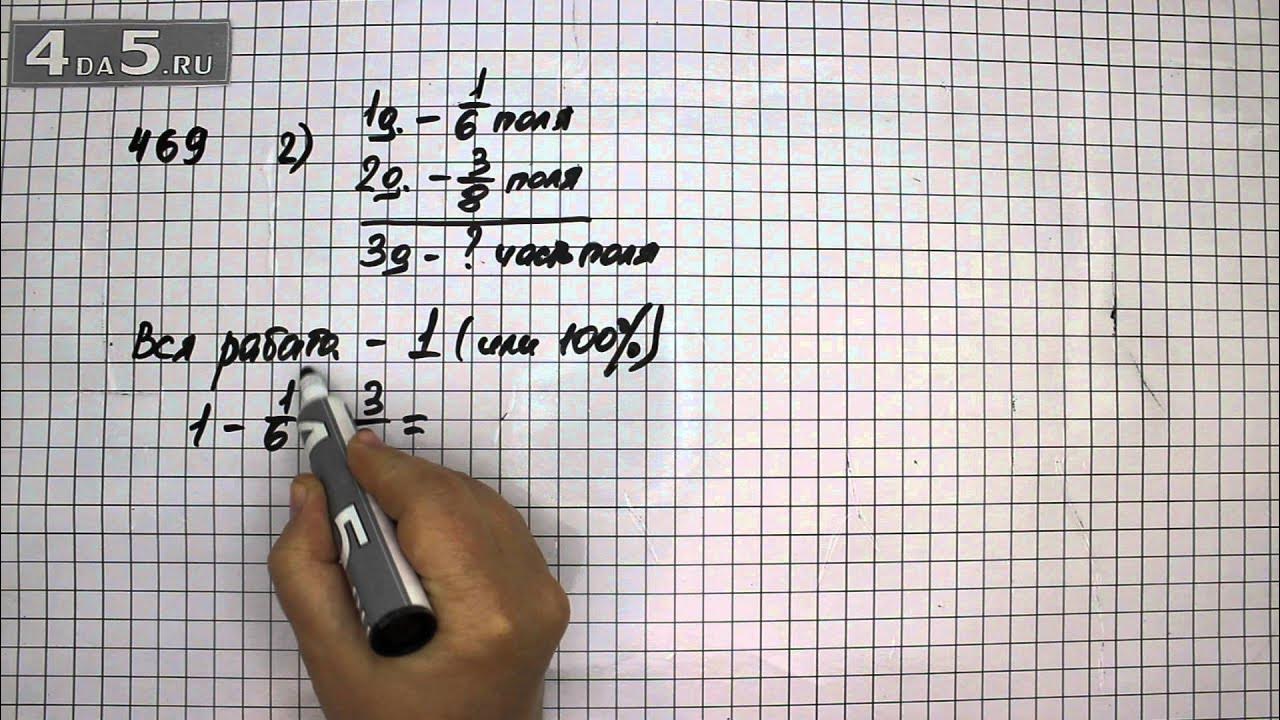 4DA5.RU
469 2) 1д. - 1/6 поля
2д. - 3/8 поля
3д - ? часть поля
Вся работа - 1 (или 100%)
1 - 1/6 3 =